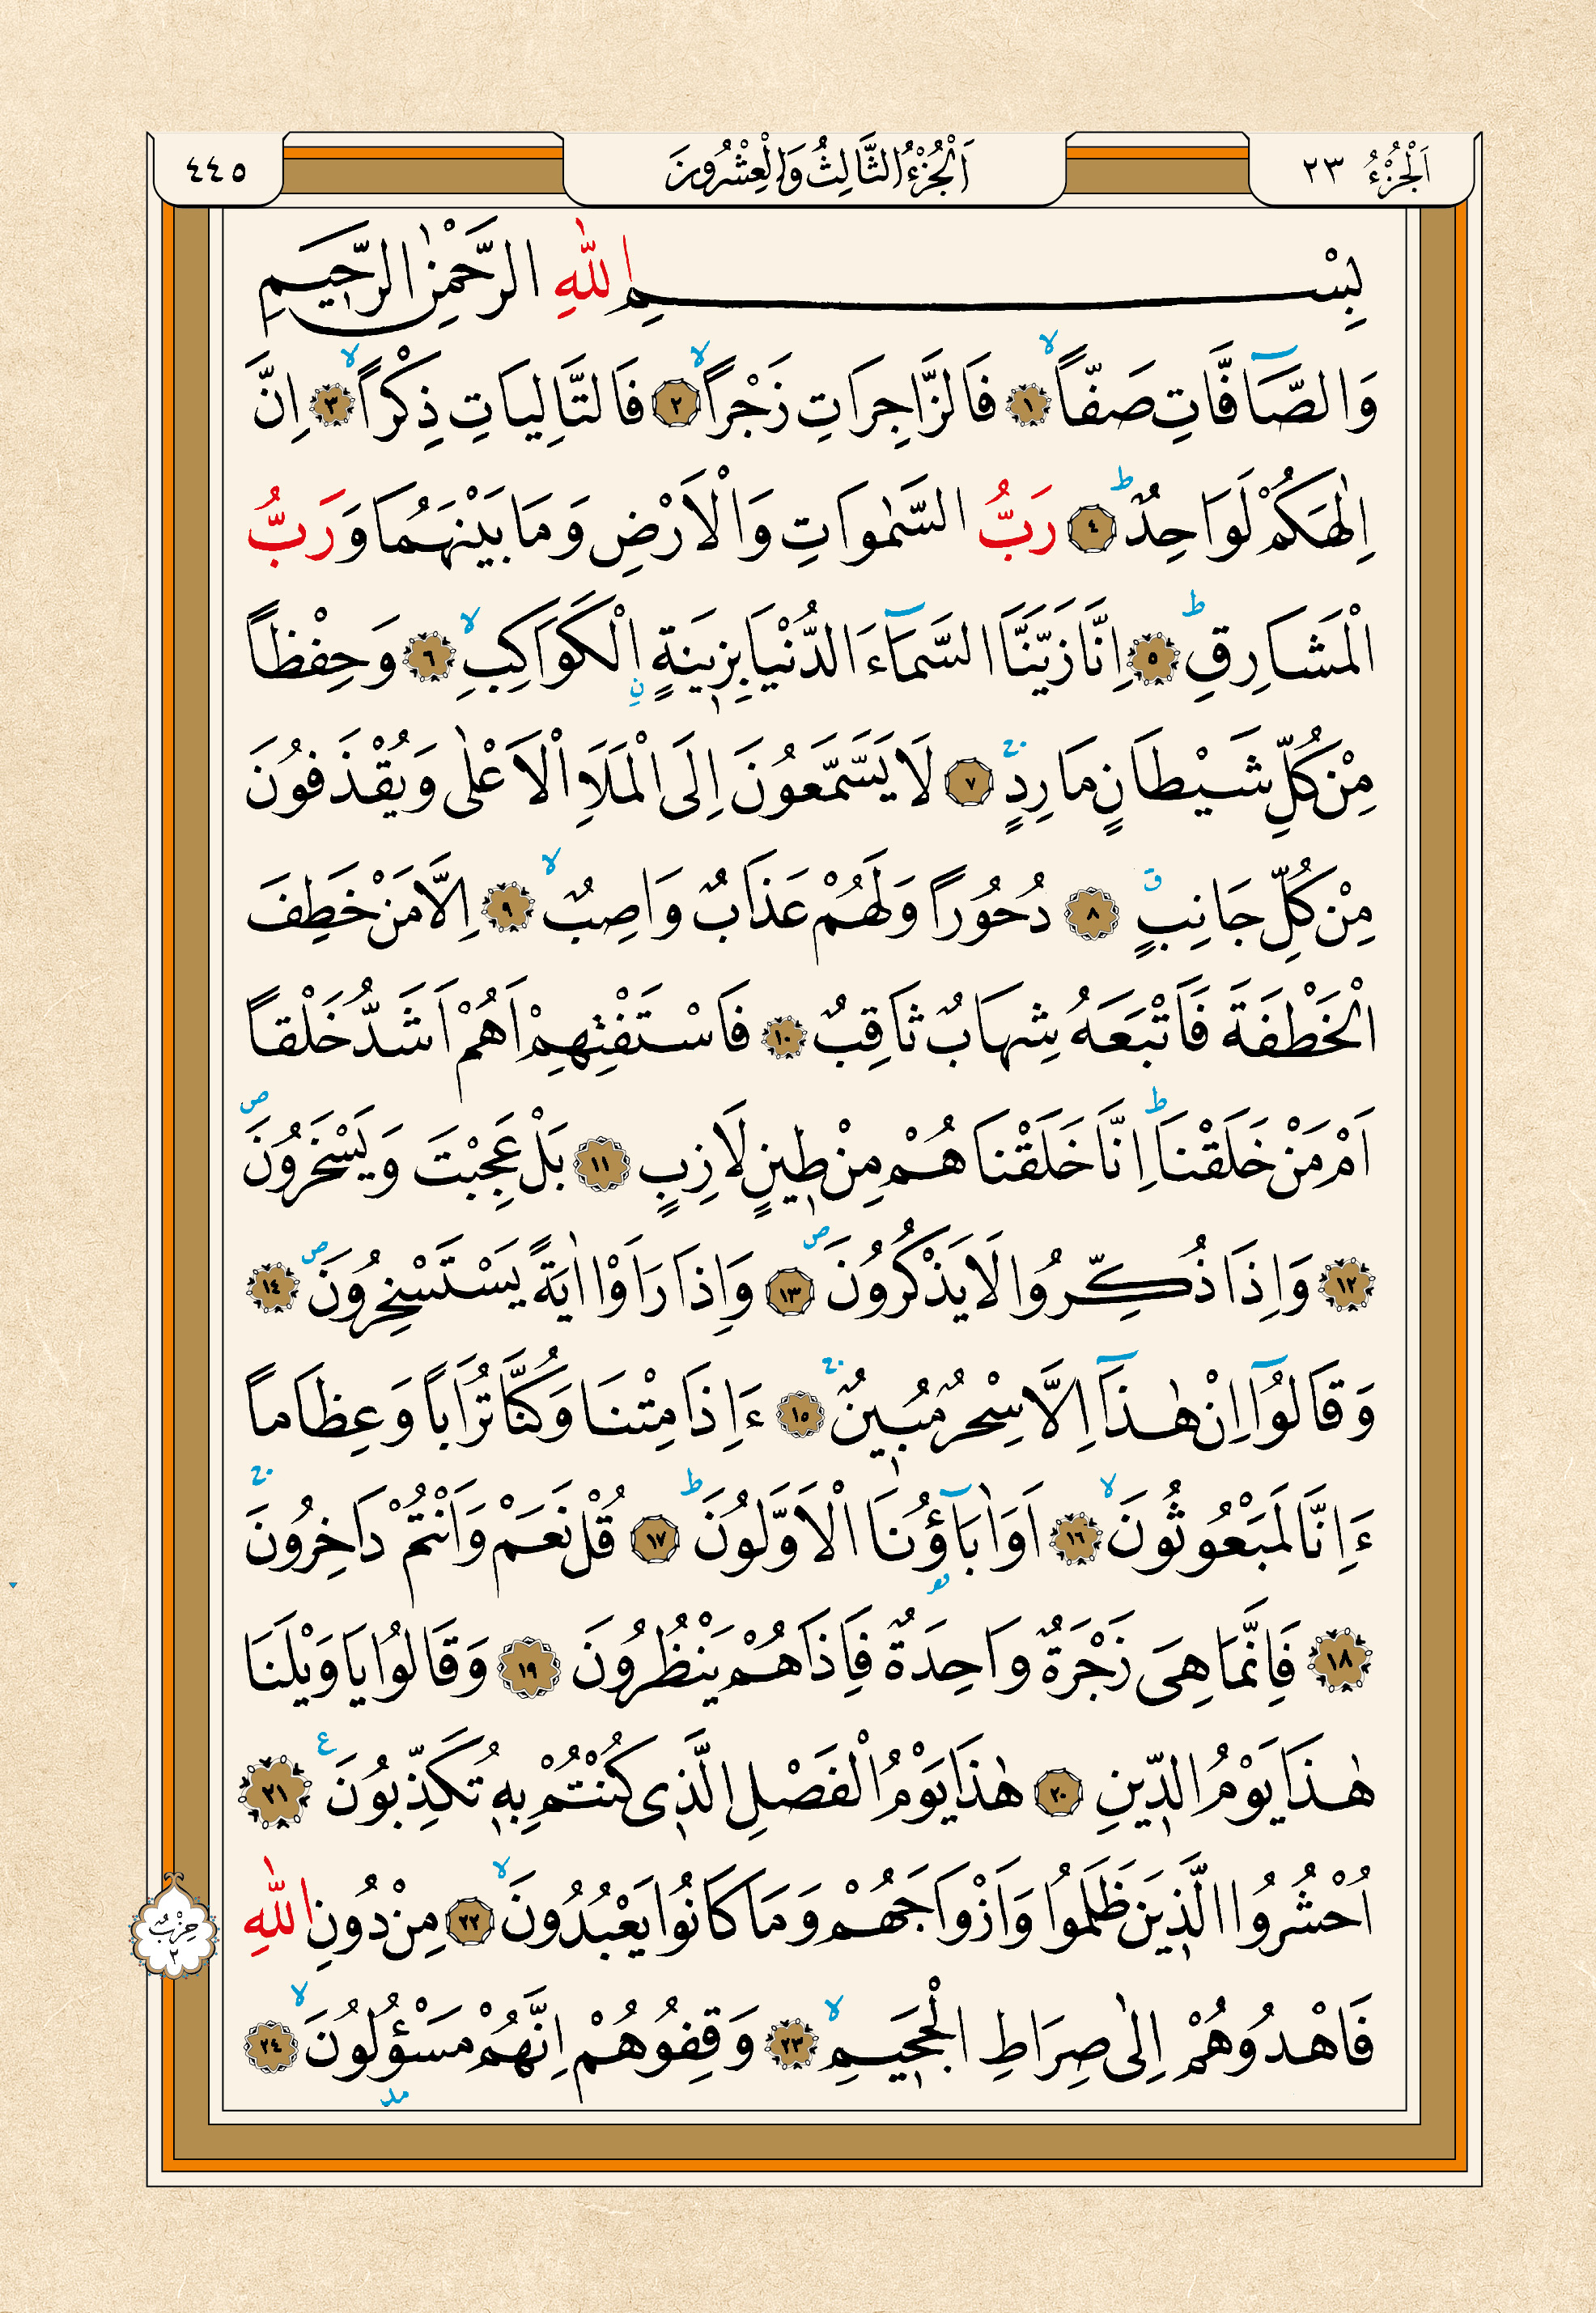 اَلْجُزْءُ ٢٣
اَلْجُزْءُ الثَّالِثُ وَالْعِشْرُونَ
٤٤٥
بِسْمِ اللّٰهِ الرَّحْمٰنِ الرَّحِيمِ
وَالصَّٓافَّاتِ صَفًّاۙ ١ فَالزَّاجِرَاتِ زَجْرًاۙ ٢ فَالتَّالِيَاتِ ذِكْرًاۙ ٣ اِنَّ
اِلٰهَكُمْ لَوَاحِدٌۜ ٤ رَبُّ السَّمٰوَاتِ وَالْاَرْضِ وَمَا بَيْنَهُمَا وَرَبُّ
الْمَشَارِقِۜ ٥ اِنَّا زَيَّنَّا السَّمَٓاءَ الدُّنْيَا بِزِينَةٍۨ الْكَوَاكِبِۙ ٦ وَحِفْظًا
مِنْ كُلِّ شَيْطَانٍ مَارِدٍۚ ٧ لَا يَسَّمَّعُونَ اِلَى الْمَلَاِ الْاَعْلٰى وَيُقْذَفُونَ
مِنْ كُلِّ جَانِبٍۗ ٨ دُحُورًا وَلَهُمْ عَذَابٌ وَاصِبٌۙ ٩ اِلَّا مَنْ خَطِفَ
الْخَطْفَةَ فَاَتْبَعَهُ شِهَابٌ ثَاقِبٌ ١٠ فَاسْتَفْتِهِمْ اَهُمْ اَشَدُّ خَلْقًا
اَمْ مَنْ خَلَقْنَاۜ اِنَّا خَلَقْنَاهُمْ مِنْ طِينٍ لَازِبٍ ١١ بَلْ عَجِبْتَ وَيَسْخَرُونَۖ
١٢ وَاِذَا ذُكِّرُوا لَا يَذْكُرُونَۖ ١٣ وَاِذَا رَاَوْا اٰيَةً يَسْتَسْخِرُونَۖ ١٤
وَقَالُٓوا اِنْ هٰذَٓا اِلَّا سِحْرٌ مُبِينٌۚ ١٥ ءَاِذَا مِتْنَا وَكُنَّا تُرَابًا وَعِظَامًا
ءَاِنَّا لَمَبْعُوثُونَۙ ١٦ اَوَاٰبَٓاؤُ۬نَا الْاَوَّلُونَۜ ١٧ قُلْ نَعَمْ وَاَنْتُمْ دَاخِرُونَۚ
١٨ فَاِنَّمَا هِيَ زَجْرَةٌ وَاحِدَةٌ فَاِذَا هُمْ يَنْظُرُونَ ١٩ وَقَالُوا يَا وَيْلَنَا
هٰذَا يَوْمُ الدِّينِ ٢٠ هٰذَا يَوْمُ الْفَصْلِ الَّذِي كُنْتُمْ بِهِ تُكَذِّبُونَ ع ٢١
اُحْشُرُوا الَّذِينَ ظَلَمُوا وَاَزْوَاجَهُمْ وَمَا كَانُوا يَعْبُدُونَۙ ٢٢ مِنْ دُونِ اللّٰهِ
حِزْبٌ ٢
فَاهْدُوهُمْ اِلٰى صِرَاطِ الْجَحِيمِۙ ٢٣ وَقِفُوهُمْ اِنَّهُمْ مَسْؤُ۫لُونَۙ ٢٤